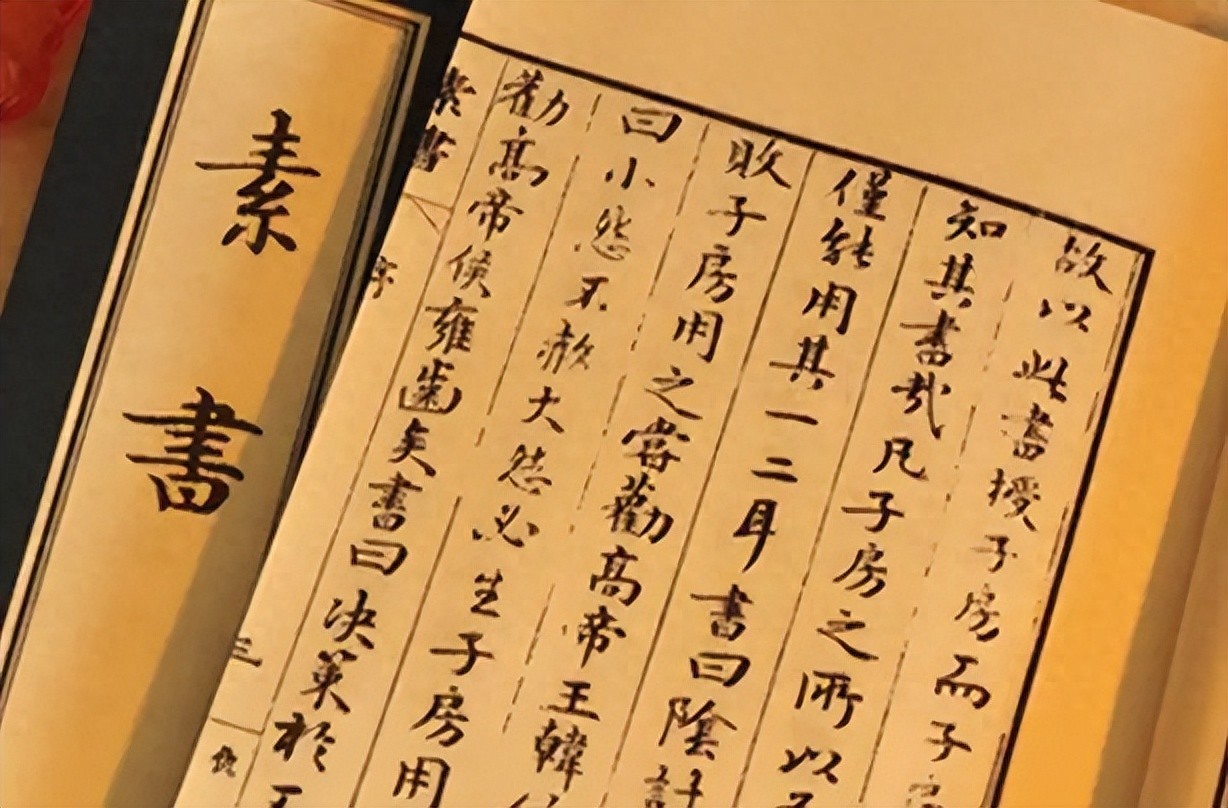 故以此書授子房而子
知其書哉凡子房之所以
僅能用其一二耳書曰陰計
敗子房用之嘗勸高帝王韓
曰小怨不赦大怨必生子房用
勸高帝侯雍齒矣書曰决策於不
素書 序 三
素書